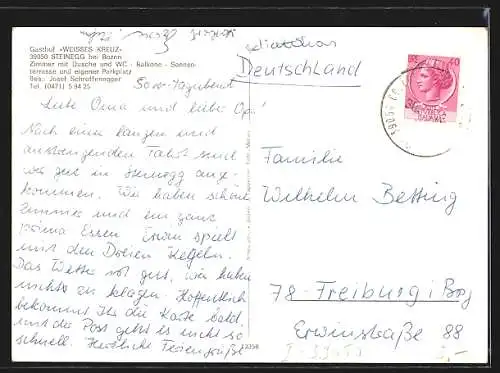 Gasthof »WEISSES KREUZ«
39050 STEINEGG bei Bozen
Zimmer mit Dusche und WC - Balkone - Sonnen-
terrasse und eigener Parkplatz
Bes.: Josef Schroffenegger
Tel. (0471) 5 94 25
Liebe Oma und lieber Opa!
Nach einer langen und
anstrengenden Fahrt sind
wir gut in Steinegg ange-
kommen. Wir haben schöne
Zimmer und ein ganz
prima Essen. Erwin spielt
mit den Dreien Kegeln.
Das Wetter ist gut, wir haben
nichts zu klagen. Hoffentlich
bekommt Ihr die Karte bald,
und die Post geht es nicht so
schnell. Herzliche Feriengrüße
Deutschland
Familie
Wilhelm Betting
78-Freiburg i Brg
Erwinstraße 88
40